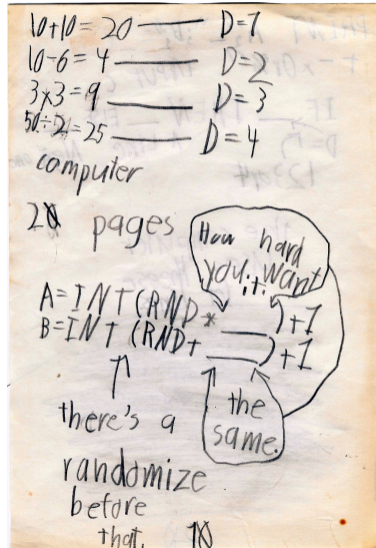 10+10=20 ——— D=1
10-6=4 ——— D=2
3×3=9 ——— D=3
50÷2=25 ——— D=4
computer
20 pages
How hard
you want
it.
A=INT(RND*___)+1
B=INT(RND+___)+1
there's a
the
same.
randomize
before
that.
10